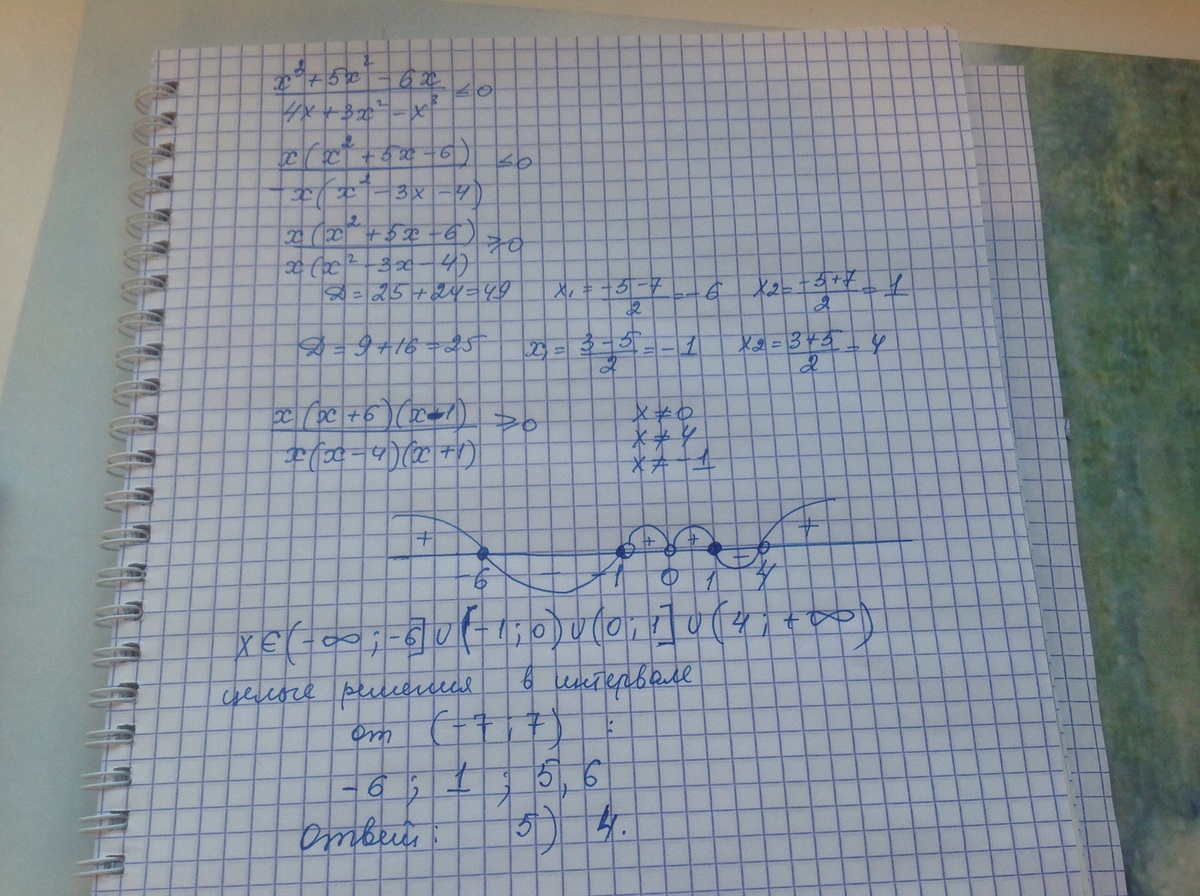 x³ + 5x² - 6x / 4x + 3x² - x³ ≤ 0
x(x² + 5x - 6) / -x(x² - 3x - 4) ≤ 0
x(x² + 5x - 6) / x(x² - 3x - 4) ≥ 0
D = 25 + 24 = 49 x₁ = -5 - 7 / 2 = -6 x₂ = -5 + 7 / 2 = 1
D = 9 + 16 = 25 x₁ = 3 - 5 / 2 = -1 x₂ = 3 + 5 / 2 = 4
x(x + 6)(x - 1) / x(x - 4)(x + 1) ≥ 0 x ≠ 0
x ≠ 4
x ≠ -1
+ - + + - +
-6 -1 0 1 4
x ∈ (-∞; -6] ∪ (-1; 0) ∪ (0; 1] ∪ (4; +∞)
целые решения в интервале
от (-7; 7) :
-6; 1; 5, 6
Ответ: 5) 4.